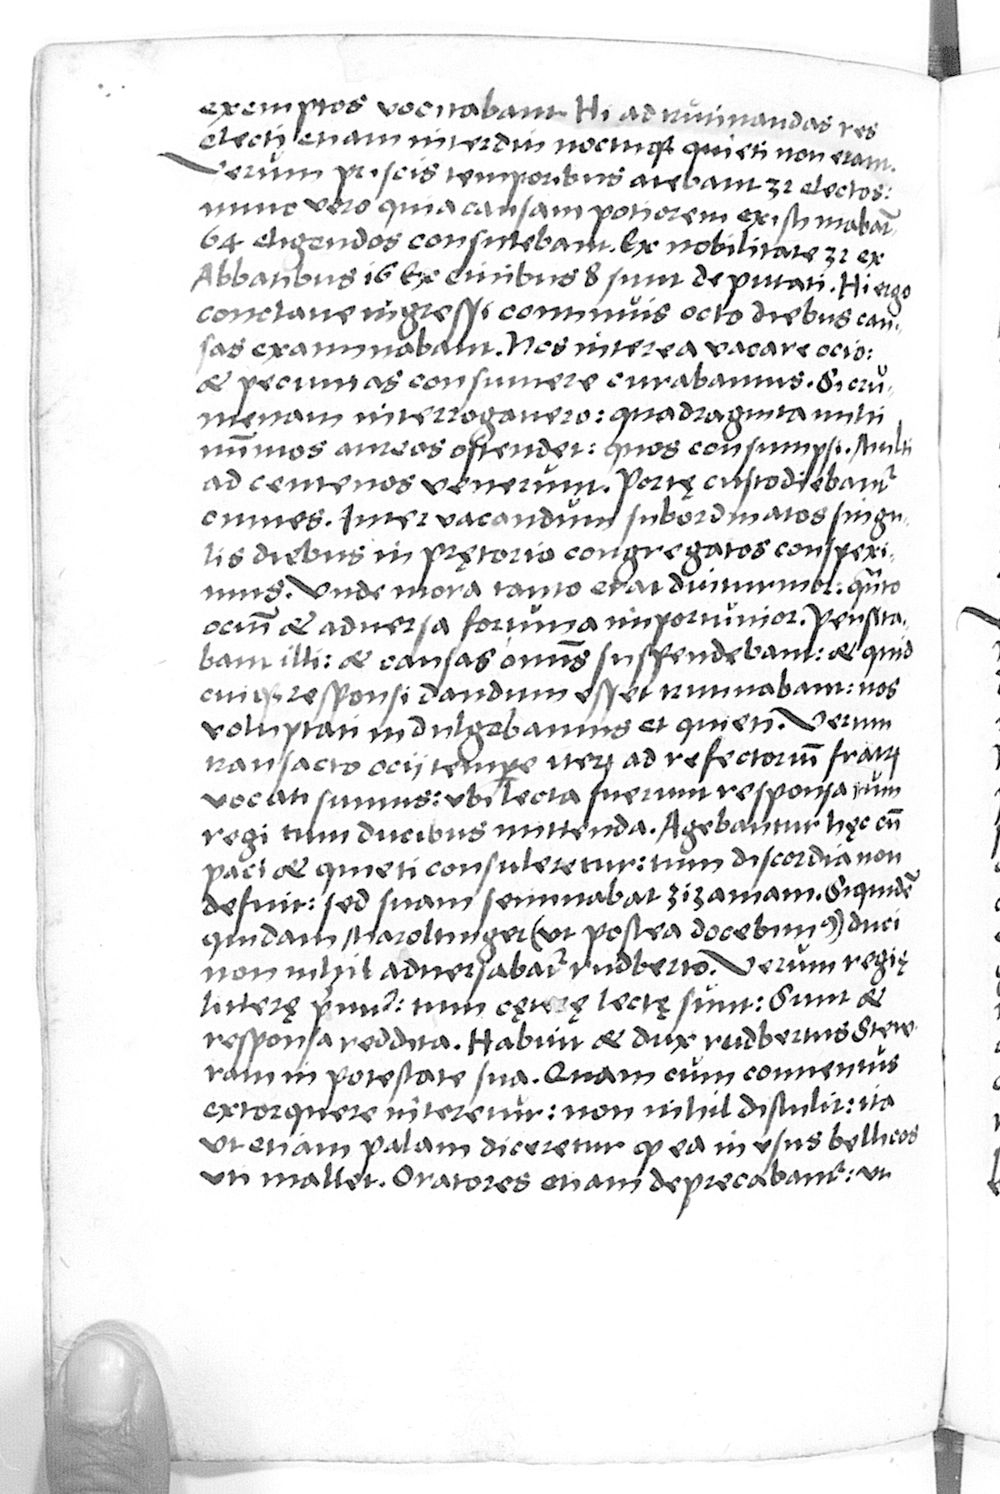 exemptos vocitabant. Hi ad ruminandas res
electi etiam interdiu noctuq₃ quieti non erant.
Verum priscis temporibus aiebant 32 electos:
nunc vero quia causam potiorem existimabāt,
64 eligendos consulebant. Ex nobilitate 32 ex
Abbatibus 16 Ex civibus 8 sunt deputati. Hi ergo
conclave ingressi continuis octo diebus cau-
sas examinabant. Nos interea vacare ocio:
& pecunias consumere curabamus. Si cru-
menam interrogavero: quadraginta mihi
nūmos aureos ostendet: quos consumpsi. Multi
ad centenos venerunt. Portę custodiebant᷑
omnes. Inter vacandum subordinatos singu-
lis diebus in prętorio congregatos conspexi-
mus. Unde mora tanto erat diuturnior: quāto
ociū & adversa fortuna importunior. Pensita-
bant illi: & causas omnēs suspendebant: & quid
cuiq₃ responsi dandum esset ruminabant: nos
voluptati indulgebamus et quieti. Verum
transacto ocij tempe iterꝝ ad refectoriū fratrꝝ
vocati sumus: ubi lecta fuerunt responsa tum
regi tum ducibus mittenda. Agebantur hęc cū
paci & quieti consuleretur: tum discordia non
defuit: sed suam seminabat zizaniam. Siquidē
quidam Maroltinger (ut postea docebimꝰ) duci
non nihil adversabat᷑ rudberto. Verum regię
litterę primū: tum cęterę lectę sunt: Sunt &
responsa reddita. Habuit & dux rudbertus Stete-
ram in potestate sua. Quam cum conventus
extorquere niteretur: non nihil distulit: ita
ut etiam palam diceretur ꝙ ea in usus bellicos
uti mallet. Oratores etiam deprecabant᷑: ut